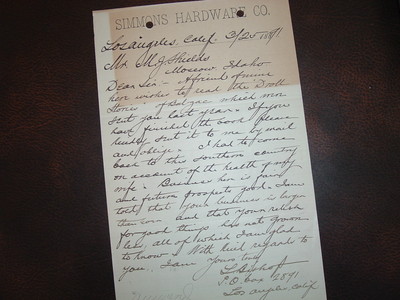 SIMMONS HARDWARE CO.
Los angeles, Calif. 3/25 1891
Mr. M. J. Shields
Moscow, Idaho
Dear Sir - A friend of mine
here wishes to read the "Droll
Stories" of Balzac which
I sent you last year. If you
have finished the book please
kindly send it to me by mail
and oblige. I had to come
back to this southern country
on account of the health of my
wife. Business here is fair
and future prospects good. I am
told that your business is larger
than ever and that your relish
for good things has not grown
less, all of which I am glad
to know. With kind regards to
you, I am yours truly
P.O. box 2891
Los angeles, Calif